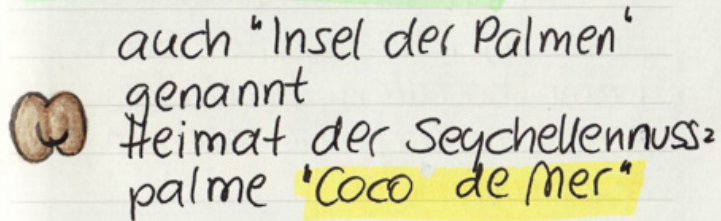 auch "Insel der Palmen"
genannt
Heimat der Seychellennuss=
palme "Coco de Mer"